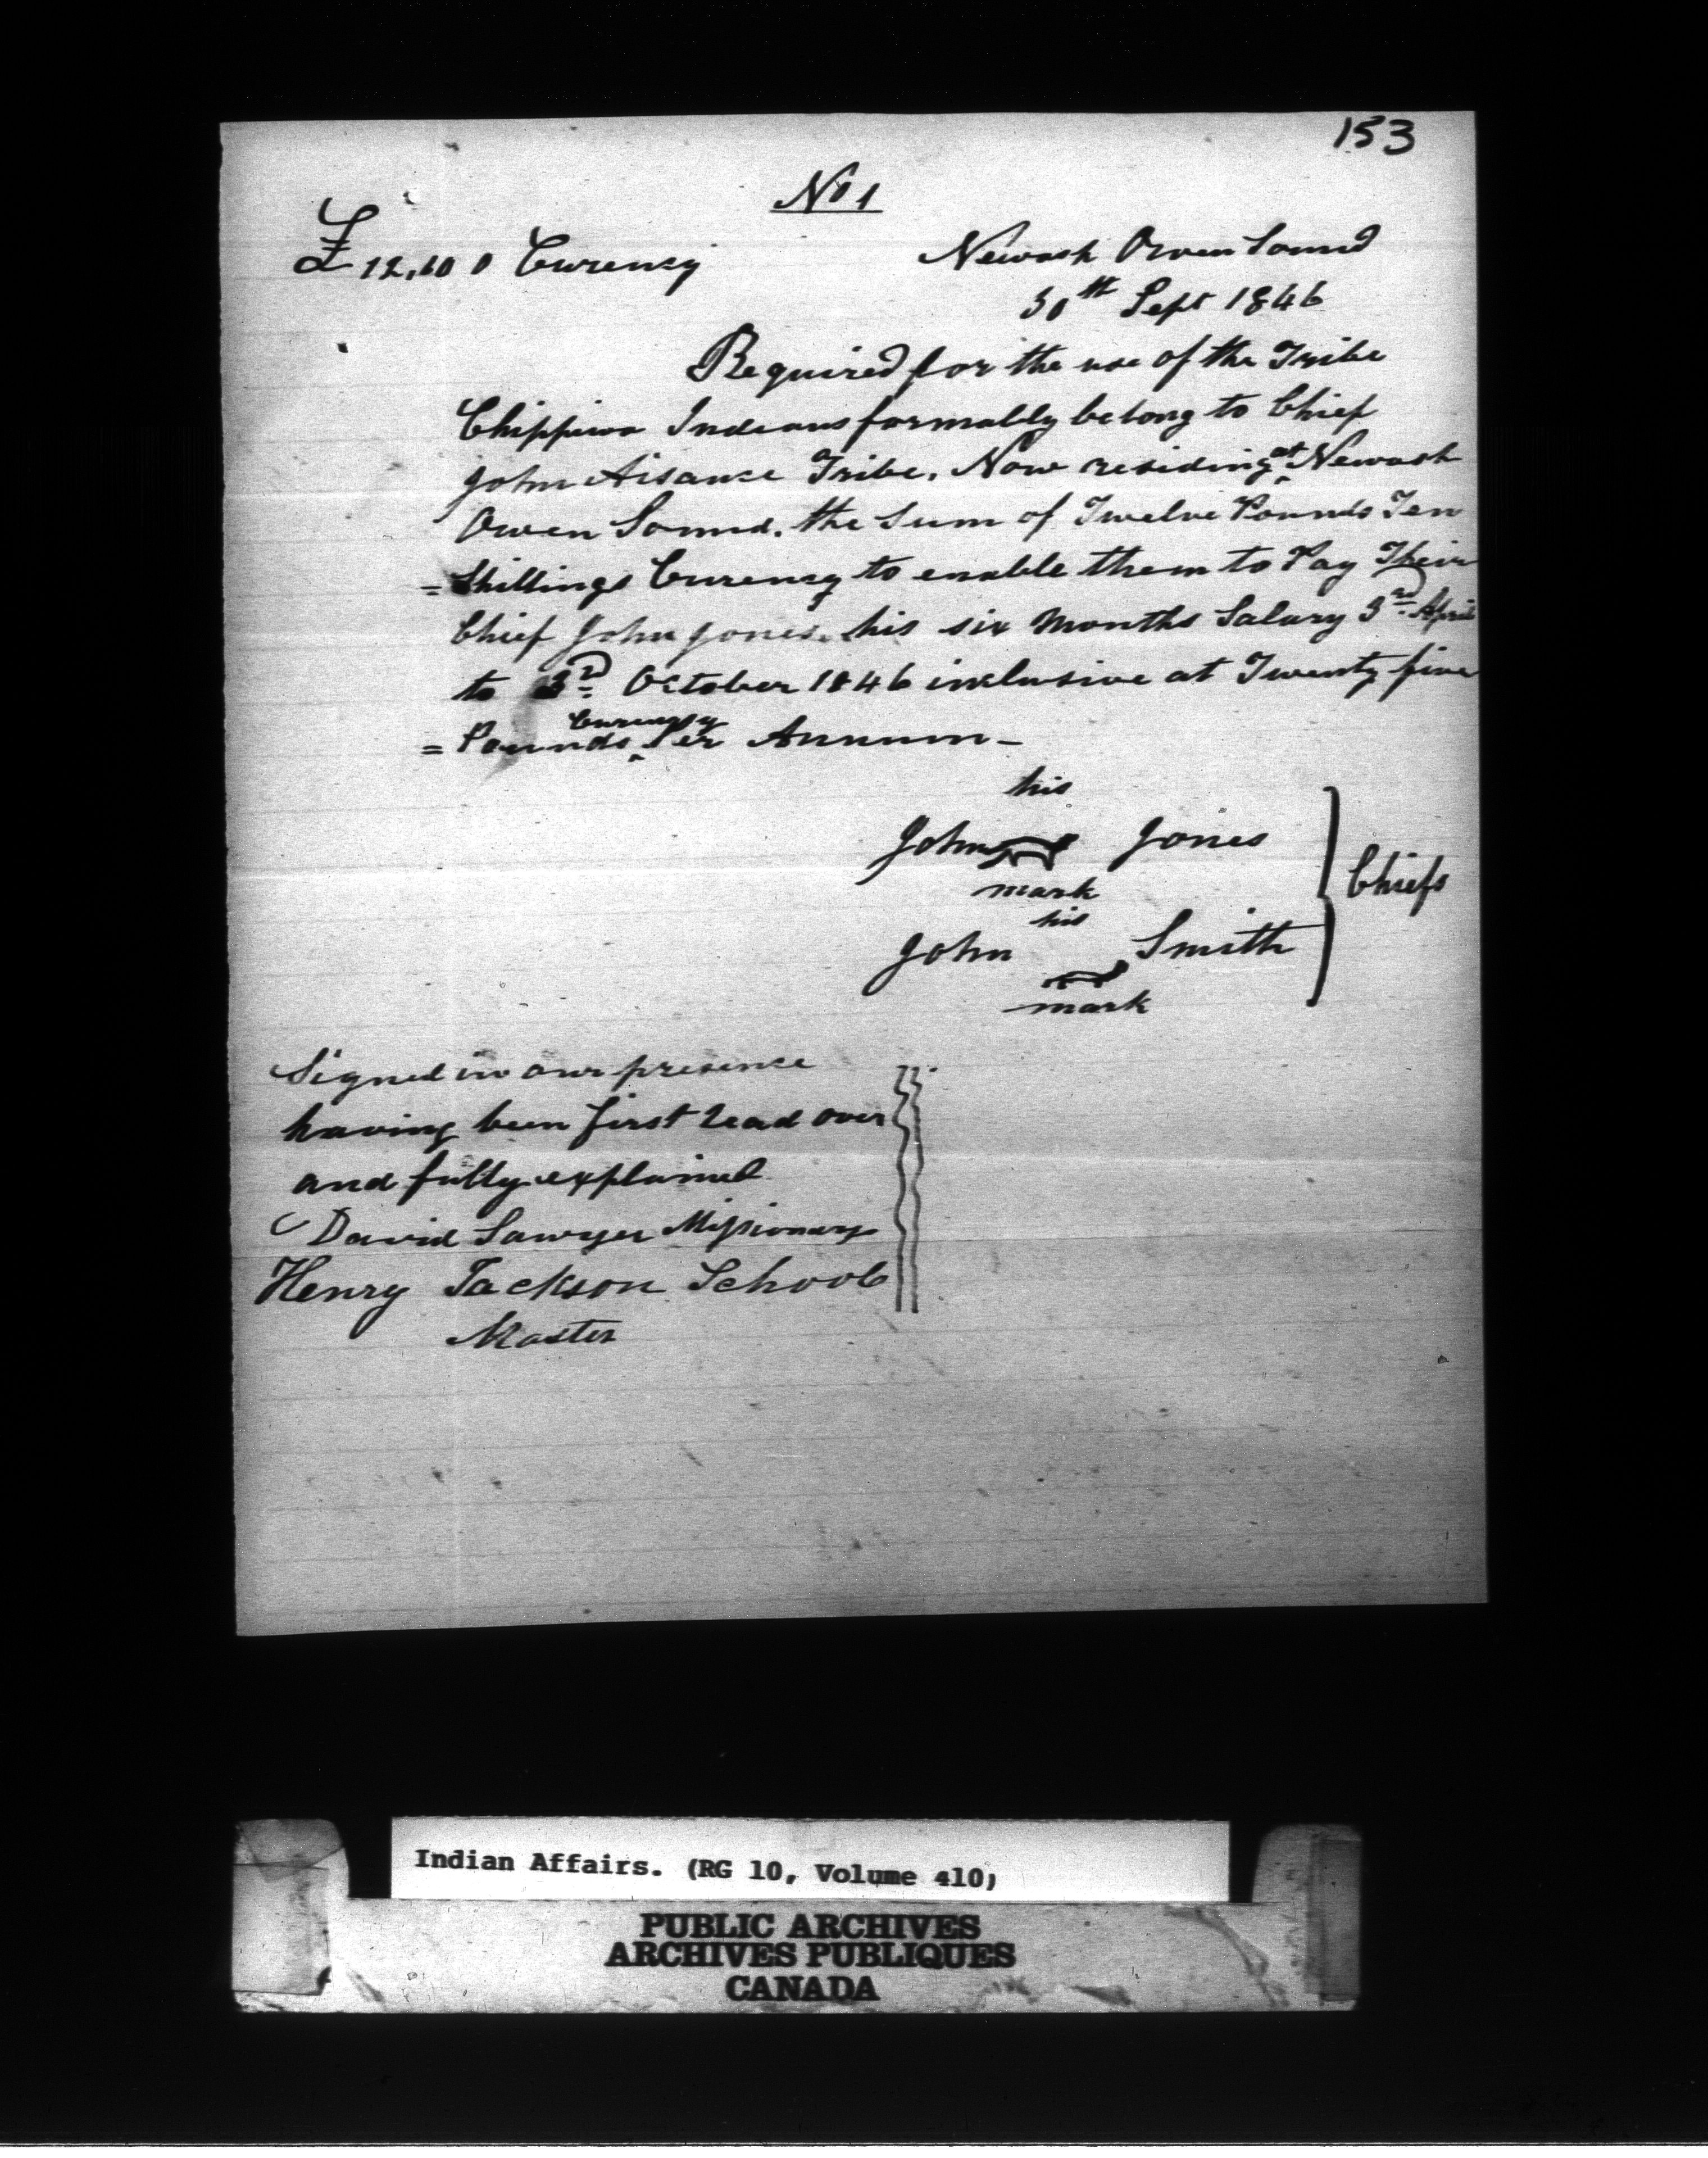 153
No 1
£12,10 0 Curency
Newash Owen Sound
30th Sept 1846
Required for the use of the Tribe
Chippiwa Indians formally belong to Chief
John Aisance Tribe, Now residing at Newash
Owen Sound. the Sum of Twelve Pounds Ten
=Shillings Curency to enable them to Pay Their
Chief John Jones, his six Months Salary 3rd April
to 3rd October 1846 inclusive at Twenty five
= Pounds Curency Per Annum -
his
John Jones
mark
his
John Smith
mark
Chiefs
Signed in our presence
having been first read over
and fully explained
David Sawyer Missionary
Henry Jackson School
Master
Indian Affairs. (RG 10, Volume 410)
PUBLIC ARCHIVES
ARCHIVES PUBLIQUES
CANADA